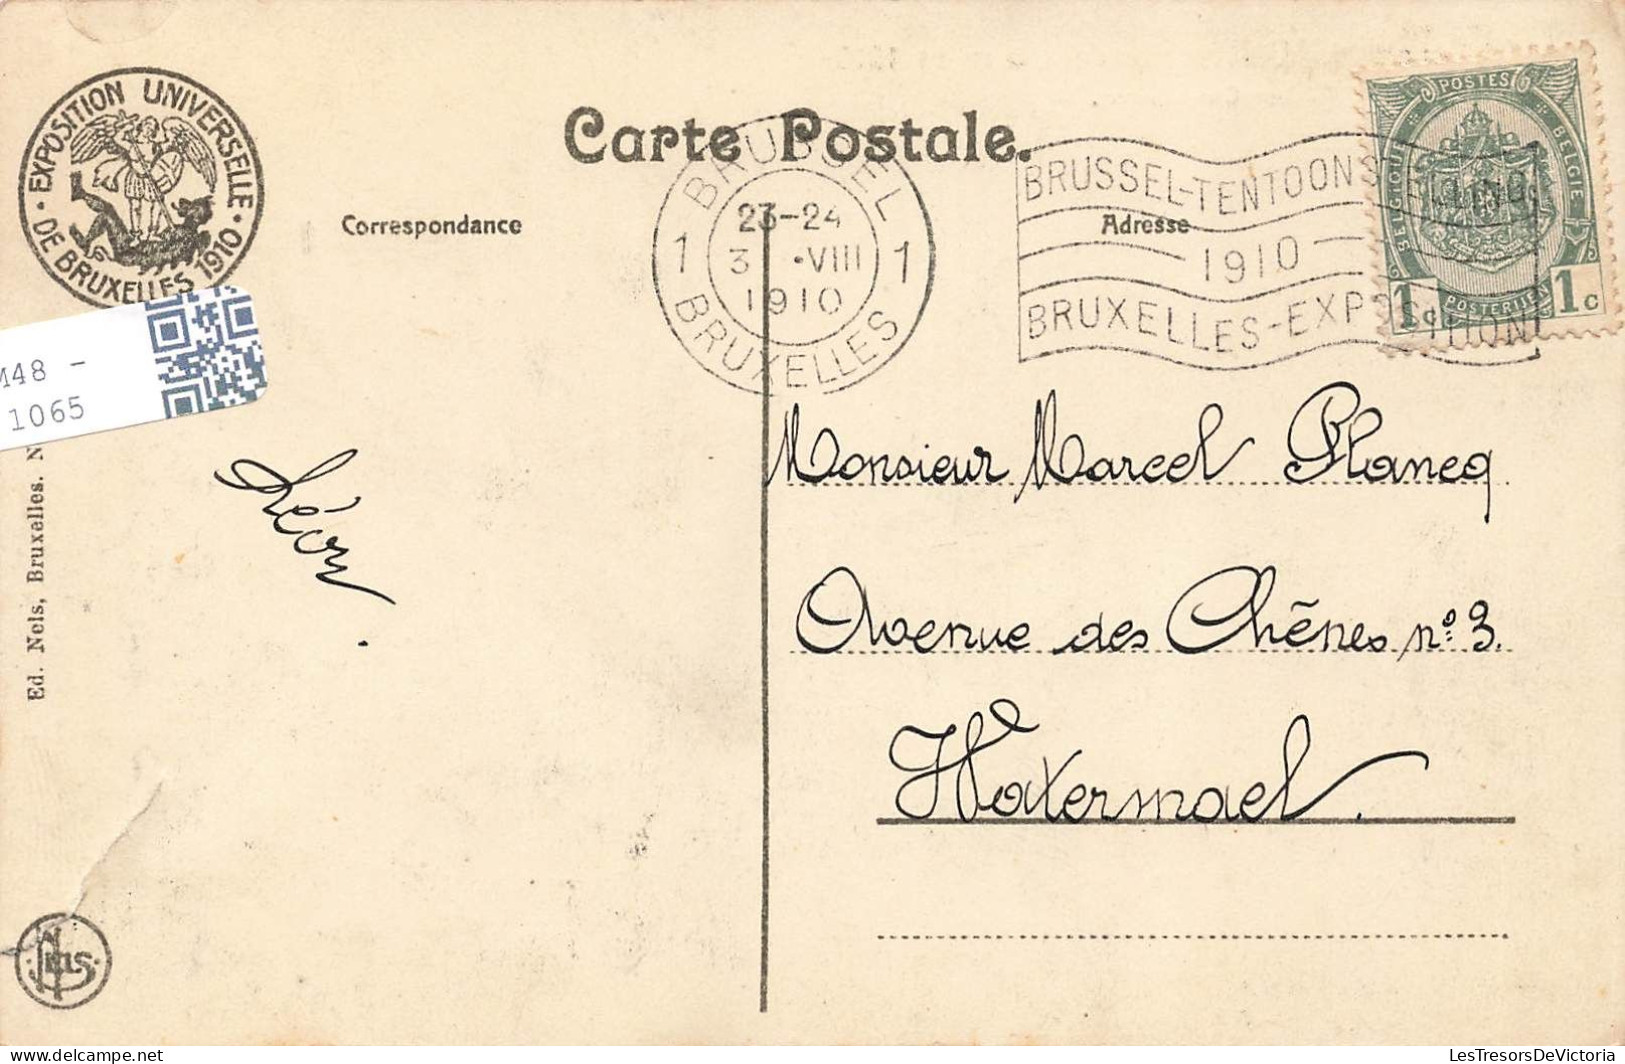 EXPOSITION UNIVERSELLE
DE BRUXELLES 1910
Carte Postale.
Correspondance
Adresse
BRUSSEL
23-24
3 .VIII
1910
1 1
BRUXELLES
BRUSSEL-TENTOONSTELLING
1910
BRUXELLES-EXPOSITION
POSTES
BELGIQUE
BELGIE
POSTERIJEN
1c 1c
M48 -
1065
Ed. Nels, Bruxelles. N
Léon.
Monsieur Marcel Plancq
Avenue des Chênes nº 3.
Watermael.
Nels
LesTresorsDeVictoria